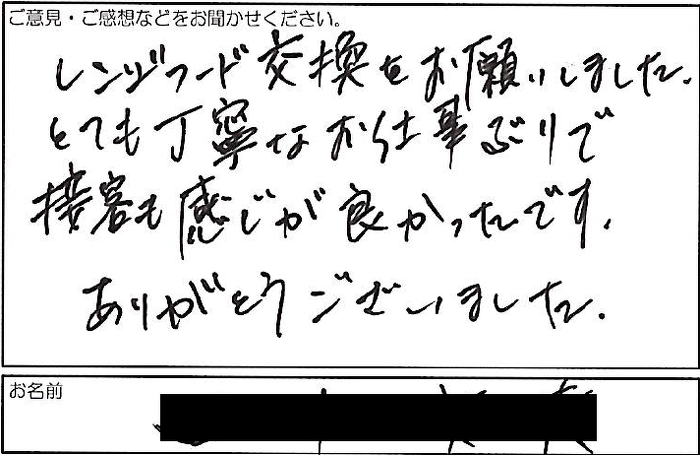 ご意見・ご感想などをお聞かせください。
レンジフード交換をお願いしました.
とても丁寧なお仕事ぶりで
接客も感じが良かったです.
ありがとうございました.
お名前